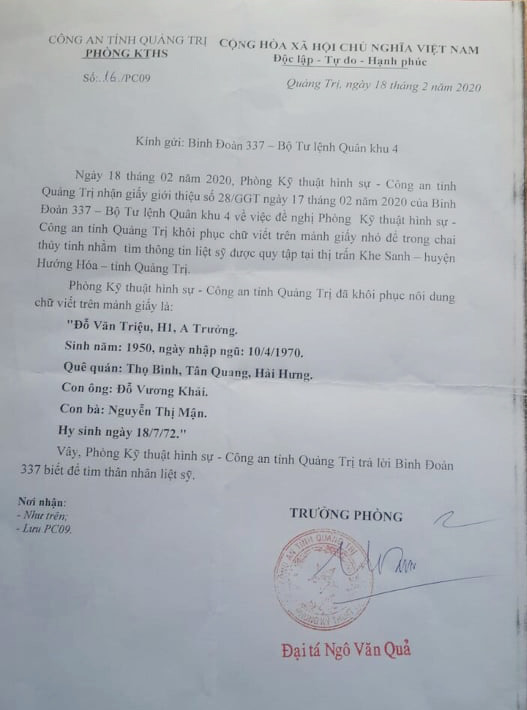 CÔNG AN TỈNH QUẢNG TRỊ
PHÒNG KTHS
Số: 16 /PC09
CỘNG HÒA XÃ HỘI CHỦ NGHĨA VIỆT NAM
Độc lập - Tự do - Hạnh phúc
Quảng Trị, ngày 18 tháng 2 năm 2020
Kính gửi: Binh Đoàn 337 – Bộ Tư lệnh Quân khu 4
Ngày 18 tháng 02 năm 2020, Phòng Kỹ thuật hình sự - Công an tỉnh
Quảng Trị nhận giấy giới thiệu số 28/GGT ngày 17 tháng 02 năm 2020 của Binh
Đoàn 337 – Bộ Tư lệnh Quân khu 4 về việc đề nghị Phòng Kỹ thuật hình sự -
Công an tỉnh Quảng Trị khôi phục chữ viết trên mảnh giấy nhỏ để trong chai
thủy tinh nhằm tìm thông tin liệt sỹ được quy tập tại thị trấn Khe Sanh – huyện
Hướng Hóa – tỉnh Quảng Trị.
Phòng Kỹ thuật hình sự - Công an tỉnh Quảng Trị đã khôi phục nôi dung
chữ viết trên mảnh giấy là:
"Đỗ Văn Triệu, H1, A Trưởng.
Sinh năm: 1950, ngày nhập ngũ: 10/4/1970.
Quê quán: Thọ Bình, Tân Quang, Hải Hưng.
Con ông: Đỗ Vương Khải.
Con bà: Nguyễn Thị Mận.
Hy sinh ngày 18/7/72."
Vậy, Phòng Kỹ thuật hình sự - Công an tỉnh Quảng Trị trả lời Binh Đoàn
337 biết để tìm thân nhân liệt sỹ.
Nơi nhận:
- Như trên;
- Lưu PC09.
TRƯỞNG PHÒNG
CÔNG AN TỈNH QUẢNG TRỊ
PHÒNG KỸ THUẬT
Đại tá Ngô Văn Quả